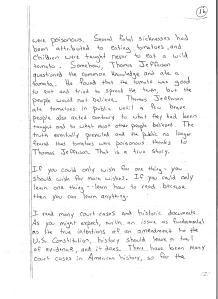 16
were poisonous. Several fatal sicknesses had
been attributed to eating tomatoes, and
children were taught never to eat a wild
tomato. Somehow, Thomas Jefferson
questioned the common knowledge and ate a
tomato. He found that the tomato was good
to eat and tried to spread the truth, but the
people would not believe. Thomas Jefferson
ate tomatoes in public until a few brave
people also acted contrary to what they had been
taught and to what most other people believed. The
truth eventually prevailed and the public no longer
found that tomatoes was poisonous thanks to
Thomas Jefferson. That is a true story.
If you could only wish for one thing - you
should wish for more wishes. If you could only
learn one thing - learn how to read because
then you can learn anything.
I read many court cases and historic documents.
As you might expect, with an issue as fundamental
as the true intentions of an amendment to the
U.S. Constitution, history should have a trail
of evidence, and it does. There have been many
court cases in American history, so far the